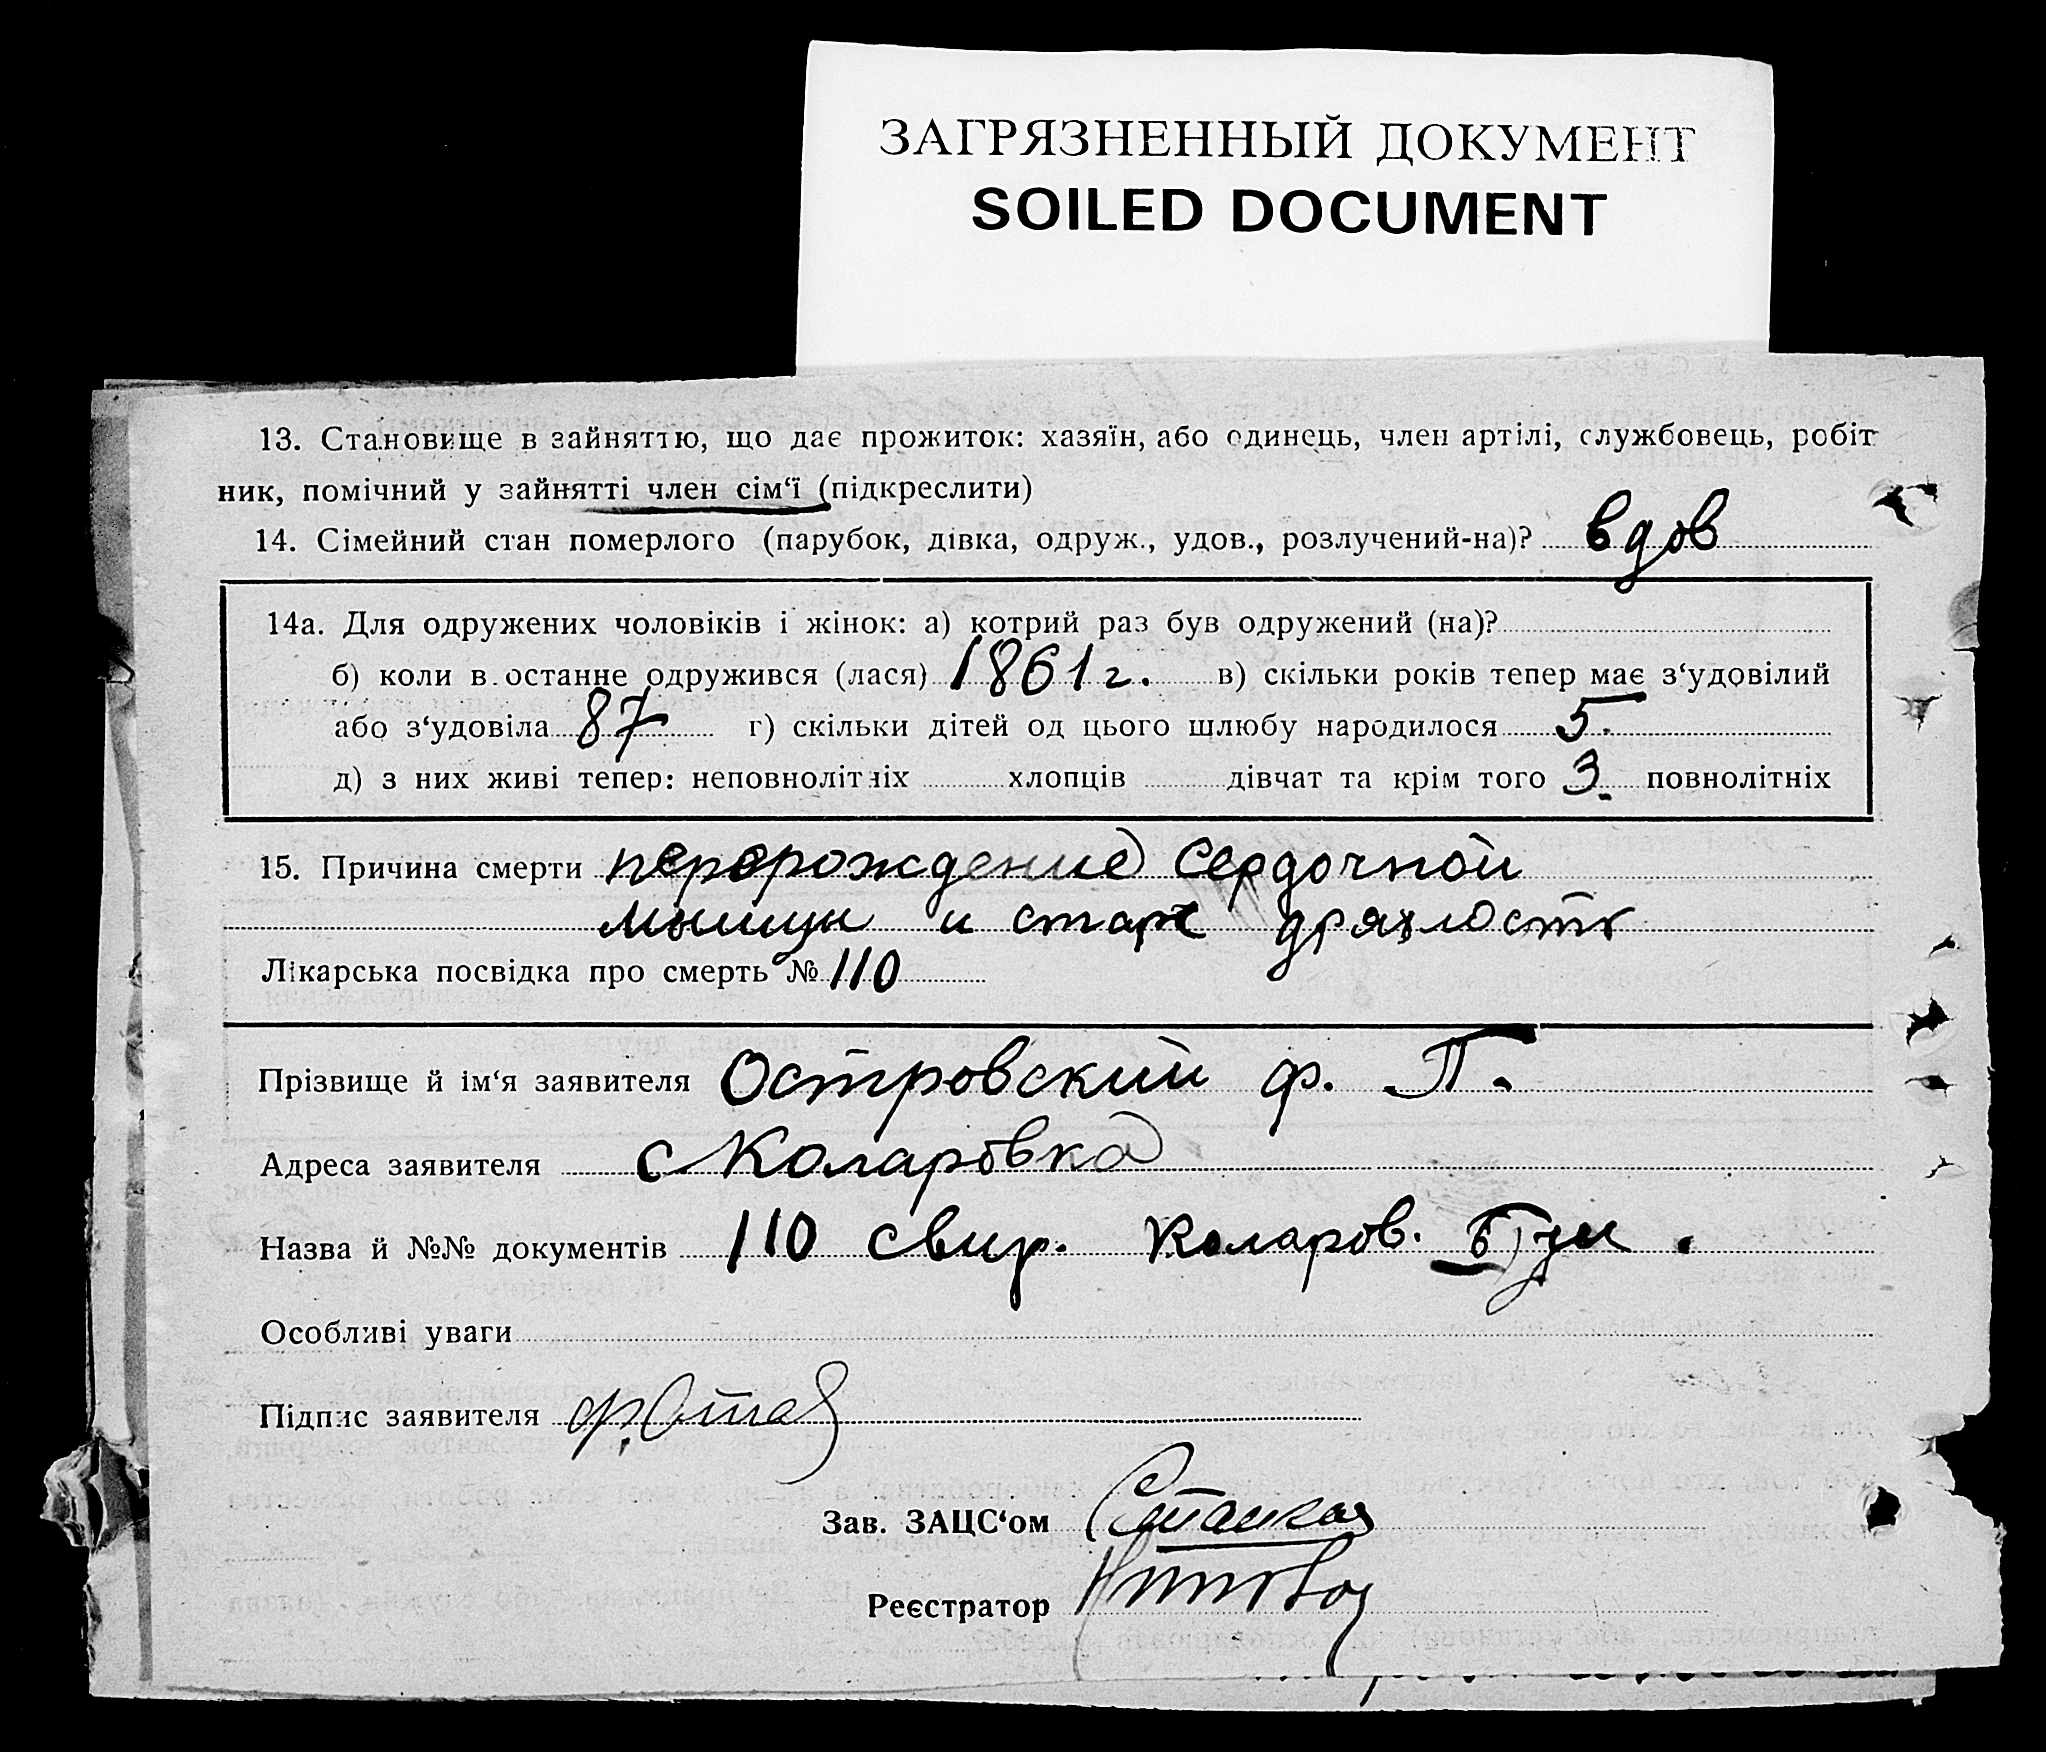 ЗАГРЯЗНЕННЫЙ ДОКУМЕНТ
SOILED DOCUMENT
13. Становище в зайняттю, що дає прожиток: хазяїн, або одинець, член артілі, службовець, робіт
ник, помічний у зайнятті член сім‘ї (підкреслити)
14. Сімейний стан померлого (парубок, дівка, одруж., удов., розлучений-на)? вдов
14а. Для одружених чоловіків і жінок: а) котрий раз був одружений (на)?
б) коли в останне одружився (лася) 1861 г. в) скільки років тепер має з‘удовілий
або з‘удовіла 87 г) скільки дітей од цього шлюбу народилося 5.
д) з них живі тепер: неповнолітніх хлопців дівчат та крім того 3. повнолітніх
15. Причина смерти перерождение сердочной
мышцы и стар дряхлость
Лікарська посвідка про смерть № 110
Прізвище й ім‘я заявителя Островский Ф. П.
Адреса заявителя с Коларовка
Назва й №№ документів 110 Коларов.
Особливі уваги
Підпис заявителя
Зав. ЗАЦС‘ом
Реєстратор